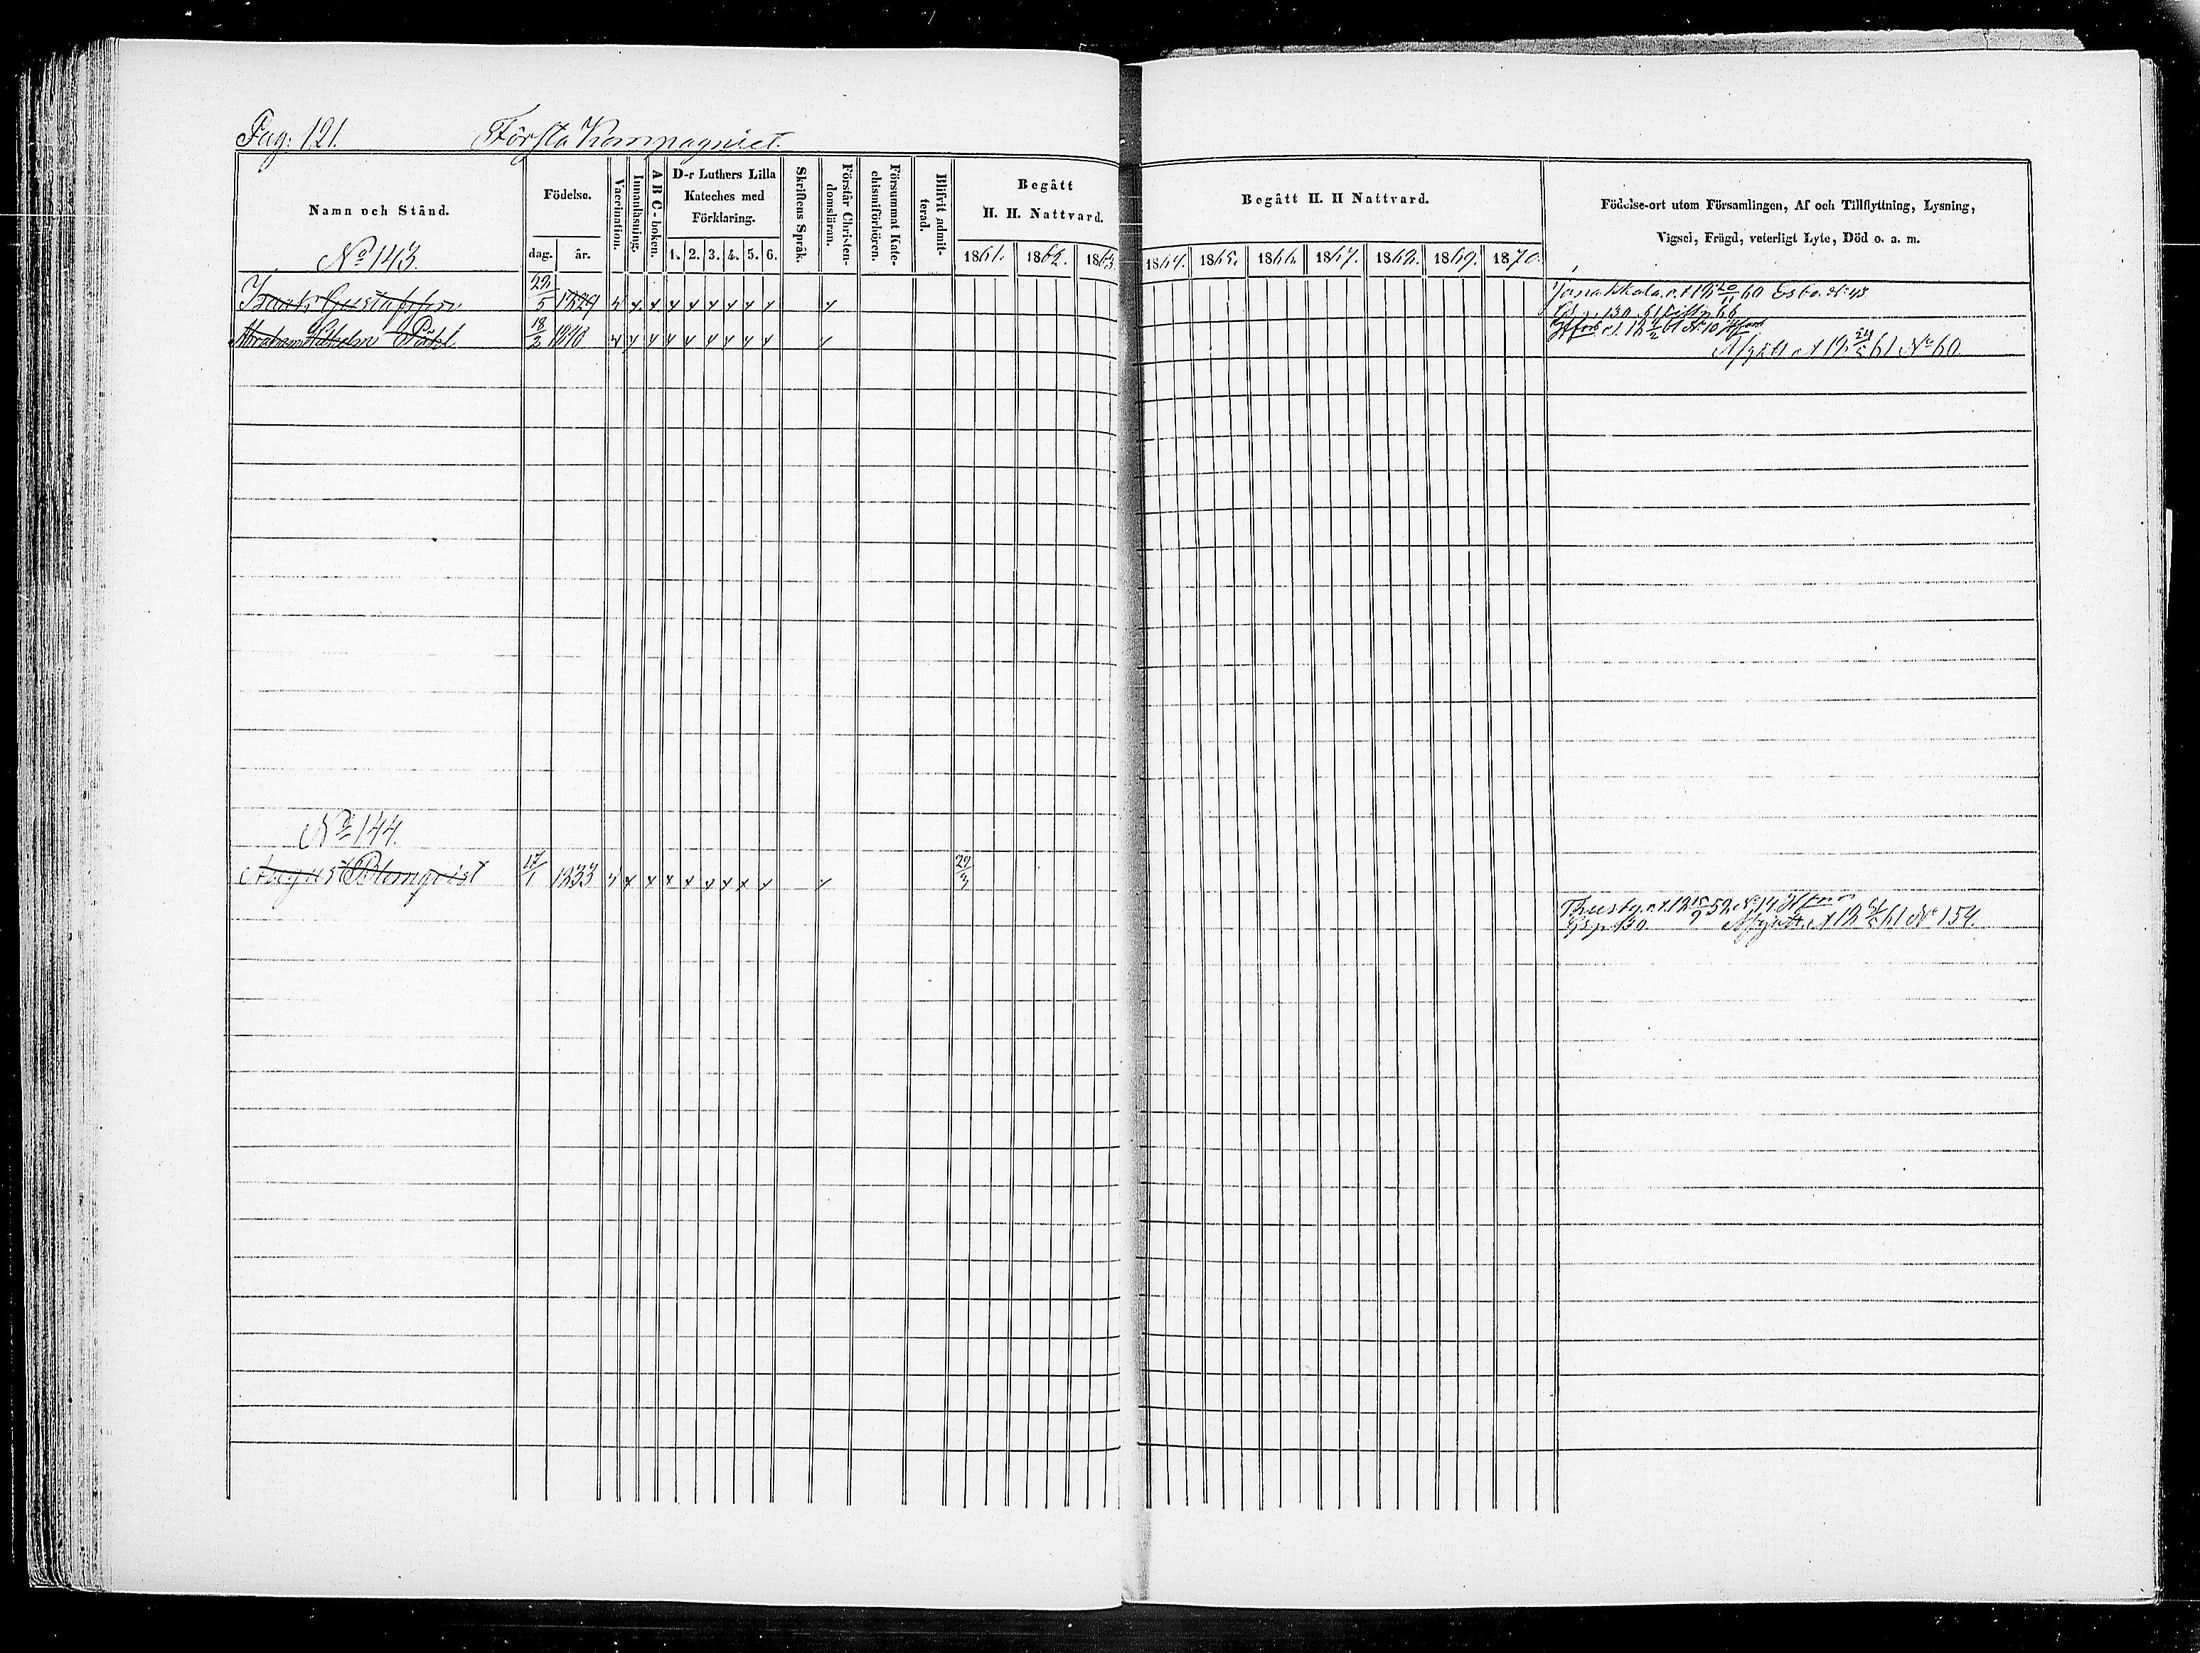 Pag: 121. Första Kompagniet.
Namn och Stånd.
Födelse.
dag. år.
Vaccination.
Innanläsning.
A B C-boken.
D-r Luthers Lilla
Kateches med
Förklaring.
1. 2. 3. 4. 5. 6.
Skriftens Språk.
Förstår Christen-
domsläran.
Försummat Kate-
chismiförhören.
Blifvit admit-
terad.
Begått
H. H. Nattvard.
1861. 1862. 1863.
Begått H. H Nattvard.
1864. 1865. 1866. 1867. 1868. 1869. 1870.
Födelse-ort utom Församlingen, Af och Tillflyttning, Lysning,
Vigsel, Frägd, veterligt Lyte, Död o. a. m.
No 143.
Isaak Gustafsson 22/5 1829
60 Esbo. No 43
Abraham Wilhelm 18/2 1840
61 No 60
No 144.
August Blomqvist 17/1 1833 29/3
Thusby 52 No 14
61 No 154